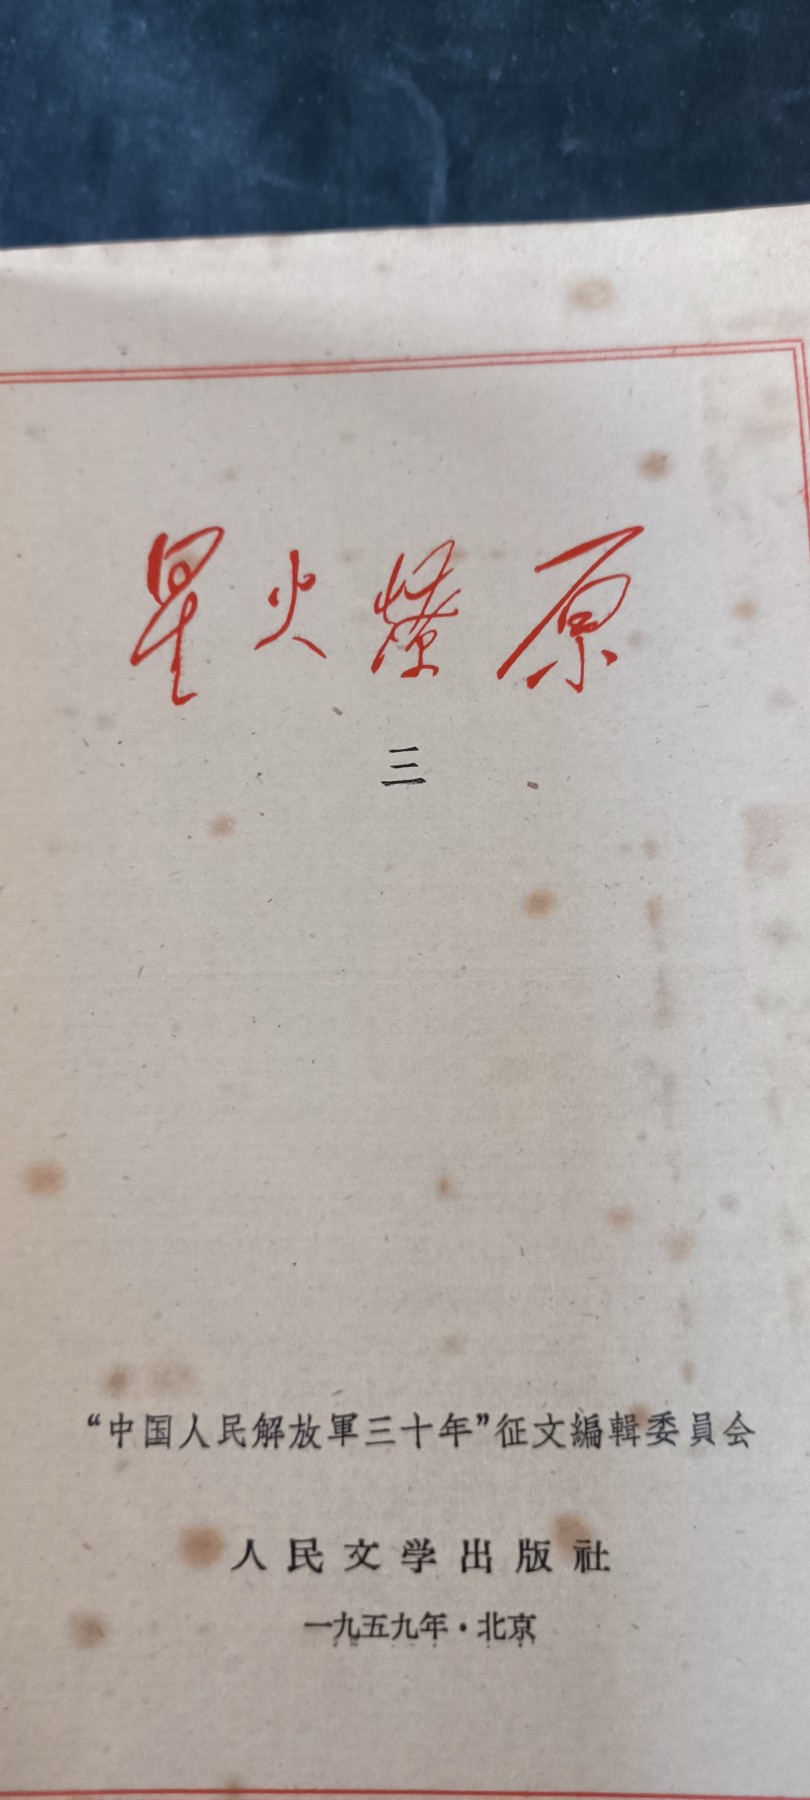 星火燎原
三
“中国人民解放軍三十年”征文編輯委員会
人民文学出版社
一九五九年·北京